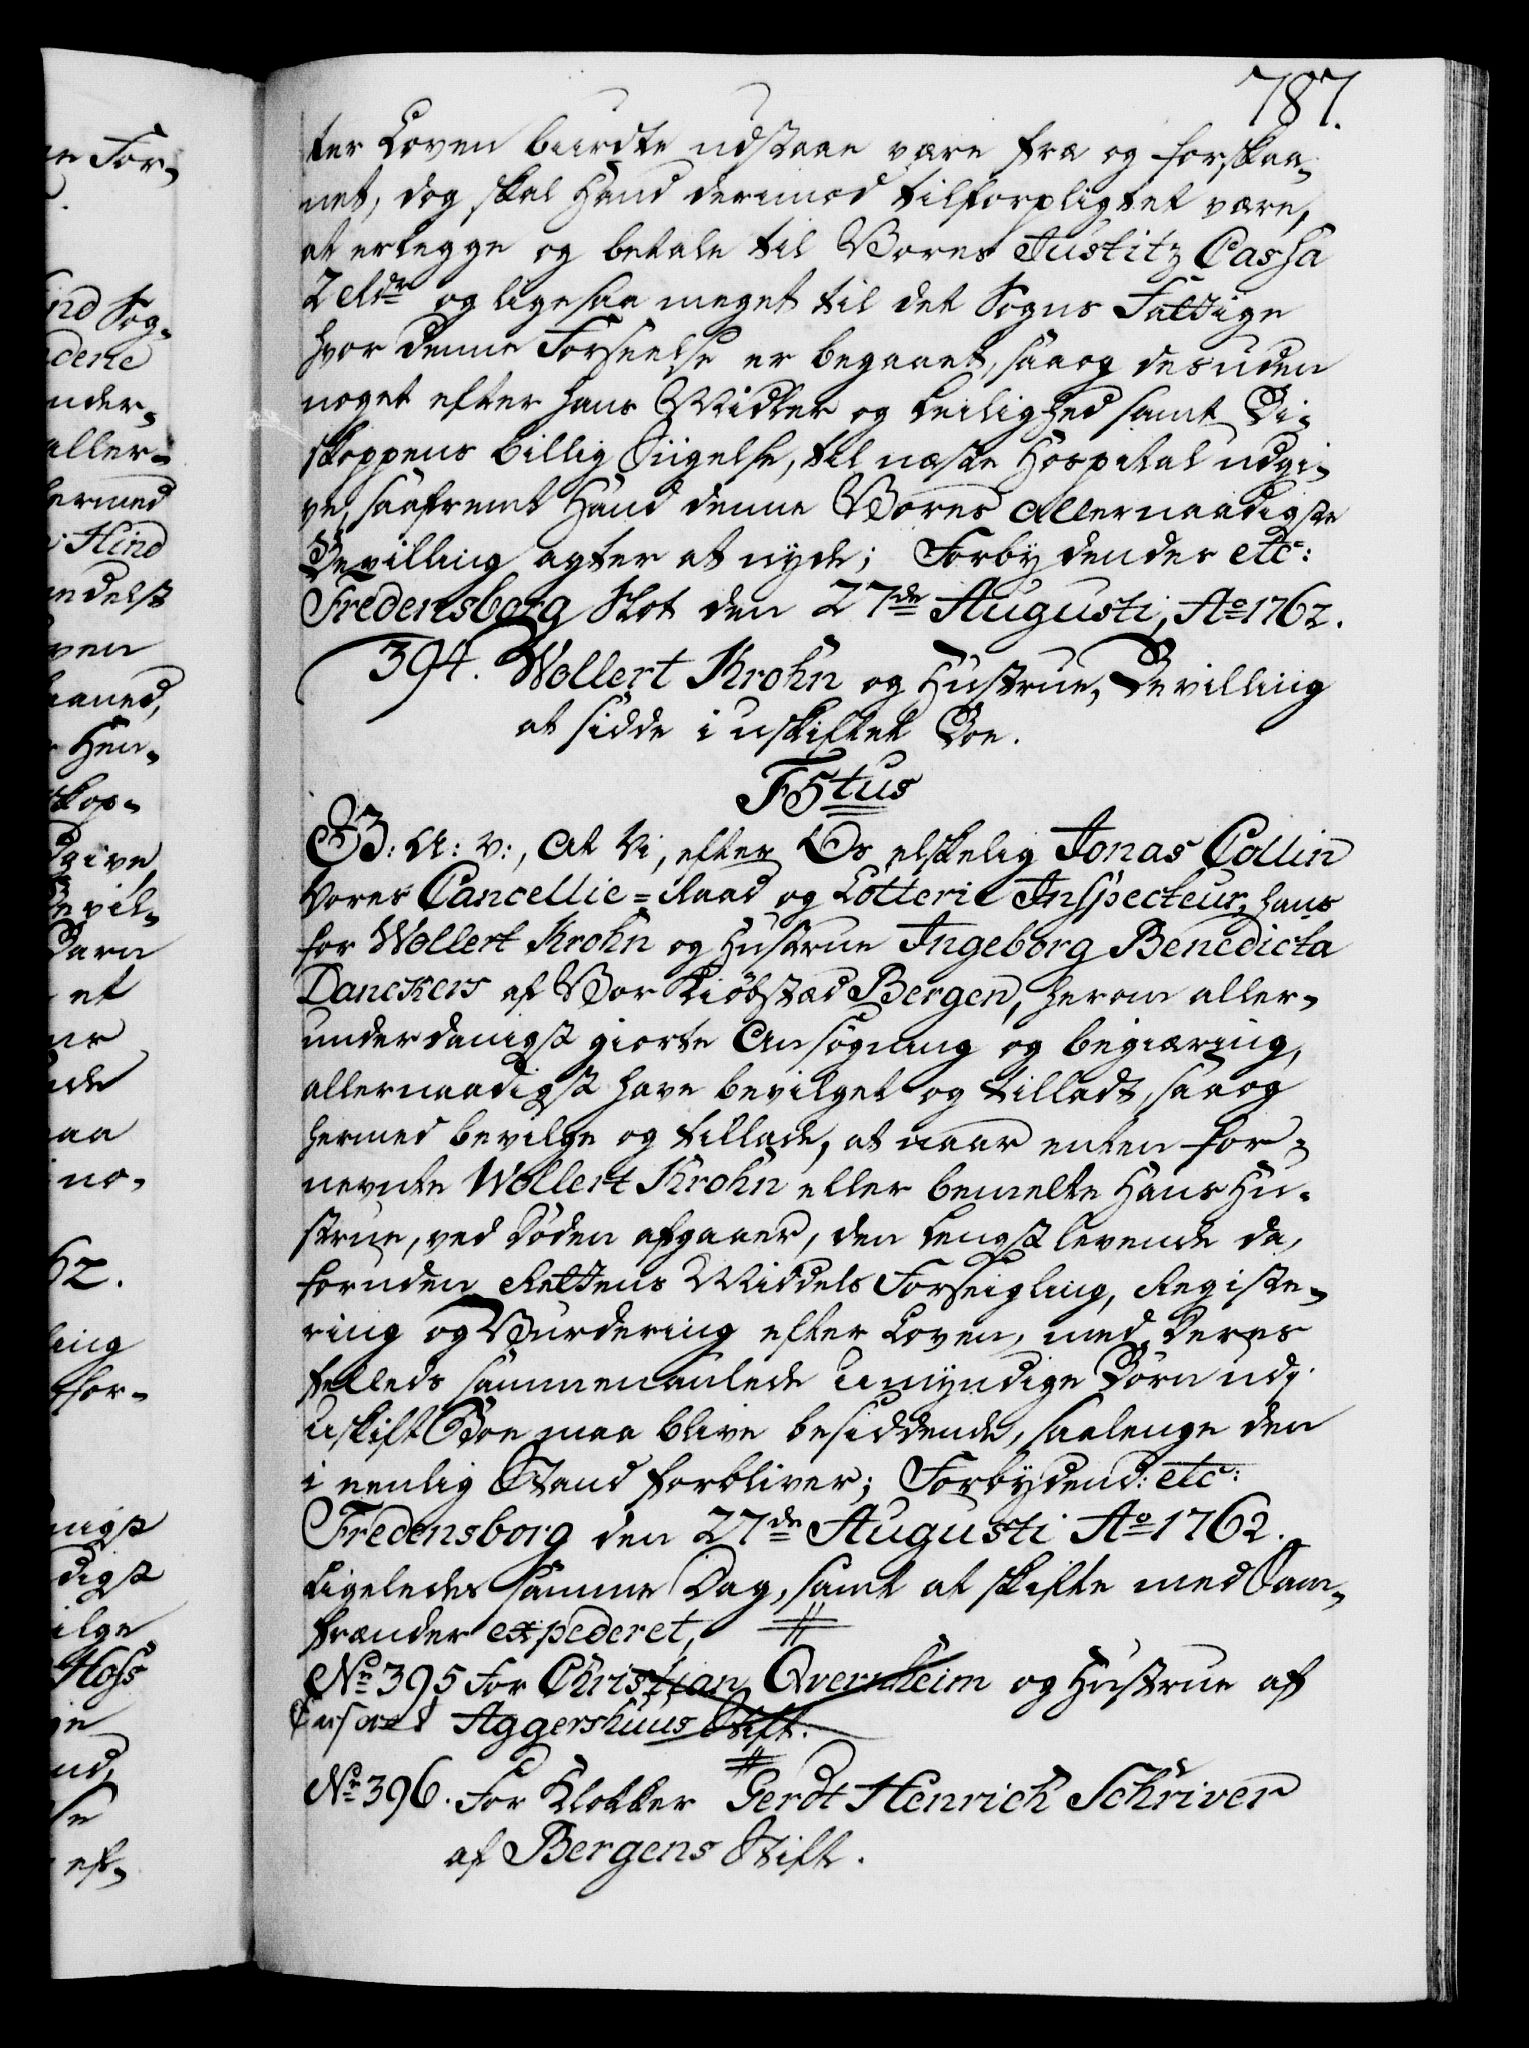 787.
ter Loven burdte udstaae være fra og forskaa-
net, dog skal Hand derimod tilforpligtet være,
at erlegge og betale til Vores Justitz Cassa
2 Rdr og ligesaa meget til det Sogns Fattige
hvor denne Forseelse er begaaet, saa og desuden
noget efter hans Midler og Leilighed samt Bi-
skoppens billig Sigelse, til næste Hospital udgi-
ve, saafremt Hand denne Vores allernaadigste
Bevilling agter at nyde; Forbydendes etc:
Fredensborg Slot den 27de Augusti, Ao 1762.
394. Wollert Krohn og Hustrue, Bevilling
at sidde i uskiftet Boe.
F5tus
G: A: V:, At Vi, efter Os elskelig Jonas Collin
Vores Cancellie=Raad og Lotterie Inspecteur, hans
for Wollert Krohn og Hustrue Ingeborg Benedicta
Danckers af Vor Kiøbstæd Bergen, herom aller-
underdanigst giorte Ansøgning og begiæring,
allernaadigst have bevilget og tilladt, saa og
hermed bevilge og tillade, at naar enten for-
nevnte Wollert Krohn eller bemelte Hans Hu-
strue, ved Døden afgaaer, den Lengst levende da,
foruden Rettens Middels Forseigling, Registe-
ring og Vurdering efter Loven, med Deres
felleds sammenavlede Umyndige Børn udj
Uskift Boe maa blive besiddende, saalenge den
i eenlig Stand forbliver; Forbydend: etc:
Fredensborg den 27de Augusti Ao 1762.
Ligeledes samme Dag, samt at skifte med Sam-
frænder expederet,
No 395 For Christian Qvernheim og Hustrue af
Aggershuus Stift.
No 396. For Klokker Gerdt Henrich Schriver
af Bergens Stift.